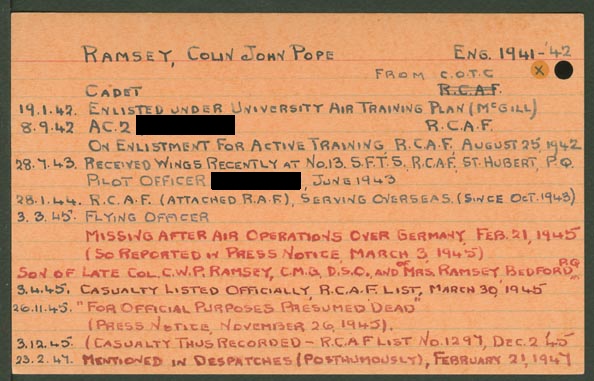 RAMSEY, COLIN JOHN POPE ENG. 1941-'42
FROM C.O.T.C
X
CADET R.C.A.F.
19.1.42. ENLISTED UNDER UNIVERSITY AIR TRAINING PLAN (MCGILL)
8.9.42 AC.2 R.C.A.F.
ON ENLISTMENT FOR ACTIVE TRAINING, R.C.A.F, AUGUST 25, 1942
28.7.43. RECEIVED WINGS RECENTLY AT NO.13. S.F.T.S, R.C.A.F. ST. HUBERT, P.Q.
PILOT OFFICER , JUNE 1943
28.1.44. R.C.A.F. (ATTACHED R.A.F.), SERVING OVERSEAS. (SINCE OCT. 1943)
3.3.45. FLYING OFFICER
MISSING AFTER AIR OPERATIONS OVER GERMANY, FEB. 21, 1945
(SO REPORTED IN PRESS NOTICE, MARCH 3, 1945)
SON OF LATE COL. C.W.P. RAMSEY, C.M.G, D.S.O., AND MRS. RAMSEY OF BEDFORD, P.Q
3.4.45. CASUALTY LISTED OFFICIALLY, R.C.A.F. LIST, MARCH 30, 1945
26.11.45. "FOR OFFICIAL PURPOSES PRESUMED DEAD"
(PRESS NOTICE, NOVEMBER 26, 1945).
3.12.45. (CASUALTY THUS RECORDED - R.C.A.F LIST NO. 1297, DEC. 2 '45
23.2.47. MENTIONED IN DESPATCHES (POSTHUMOUSLY), FEBRUARY 21, 1947